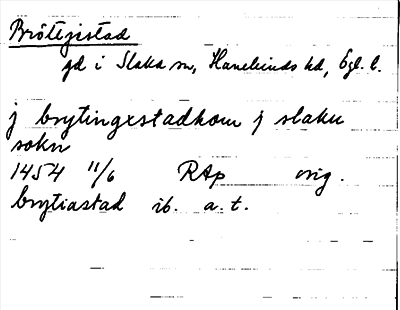 Brötjestad
gd i Slaka sn, Hanekinds hd, Ögl. l.
j brytingxstadhom j slaku
sokn
1454 11/6 RAp orig.
brytiastad ib. a. t.